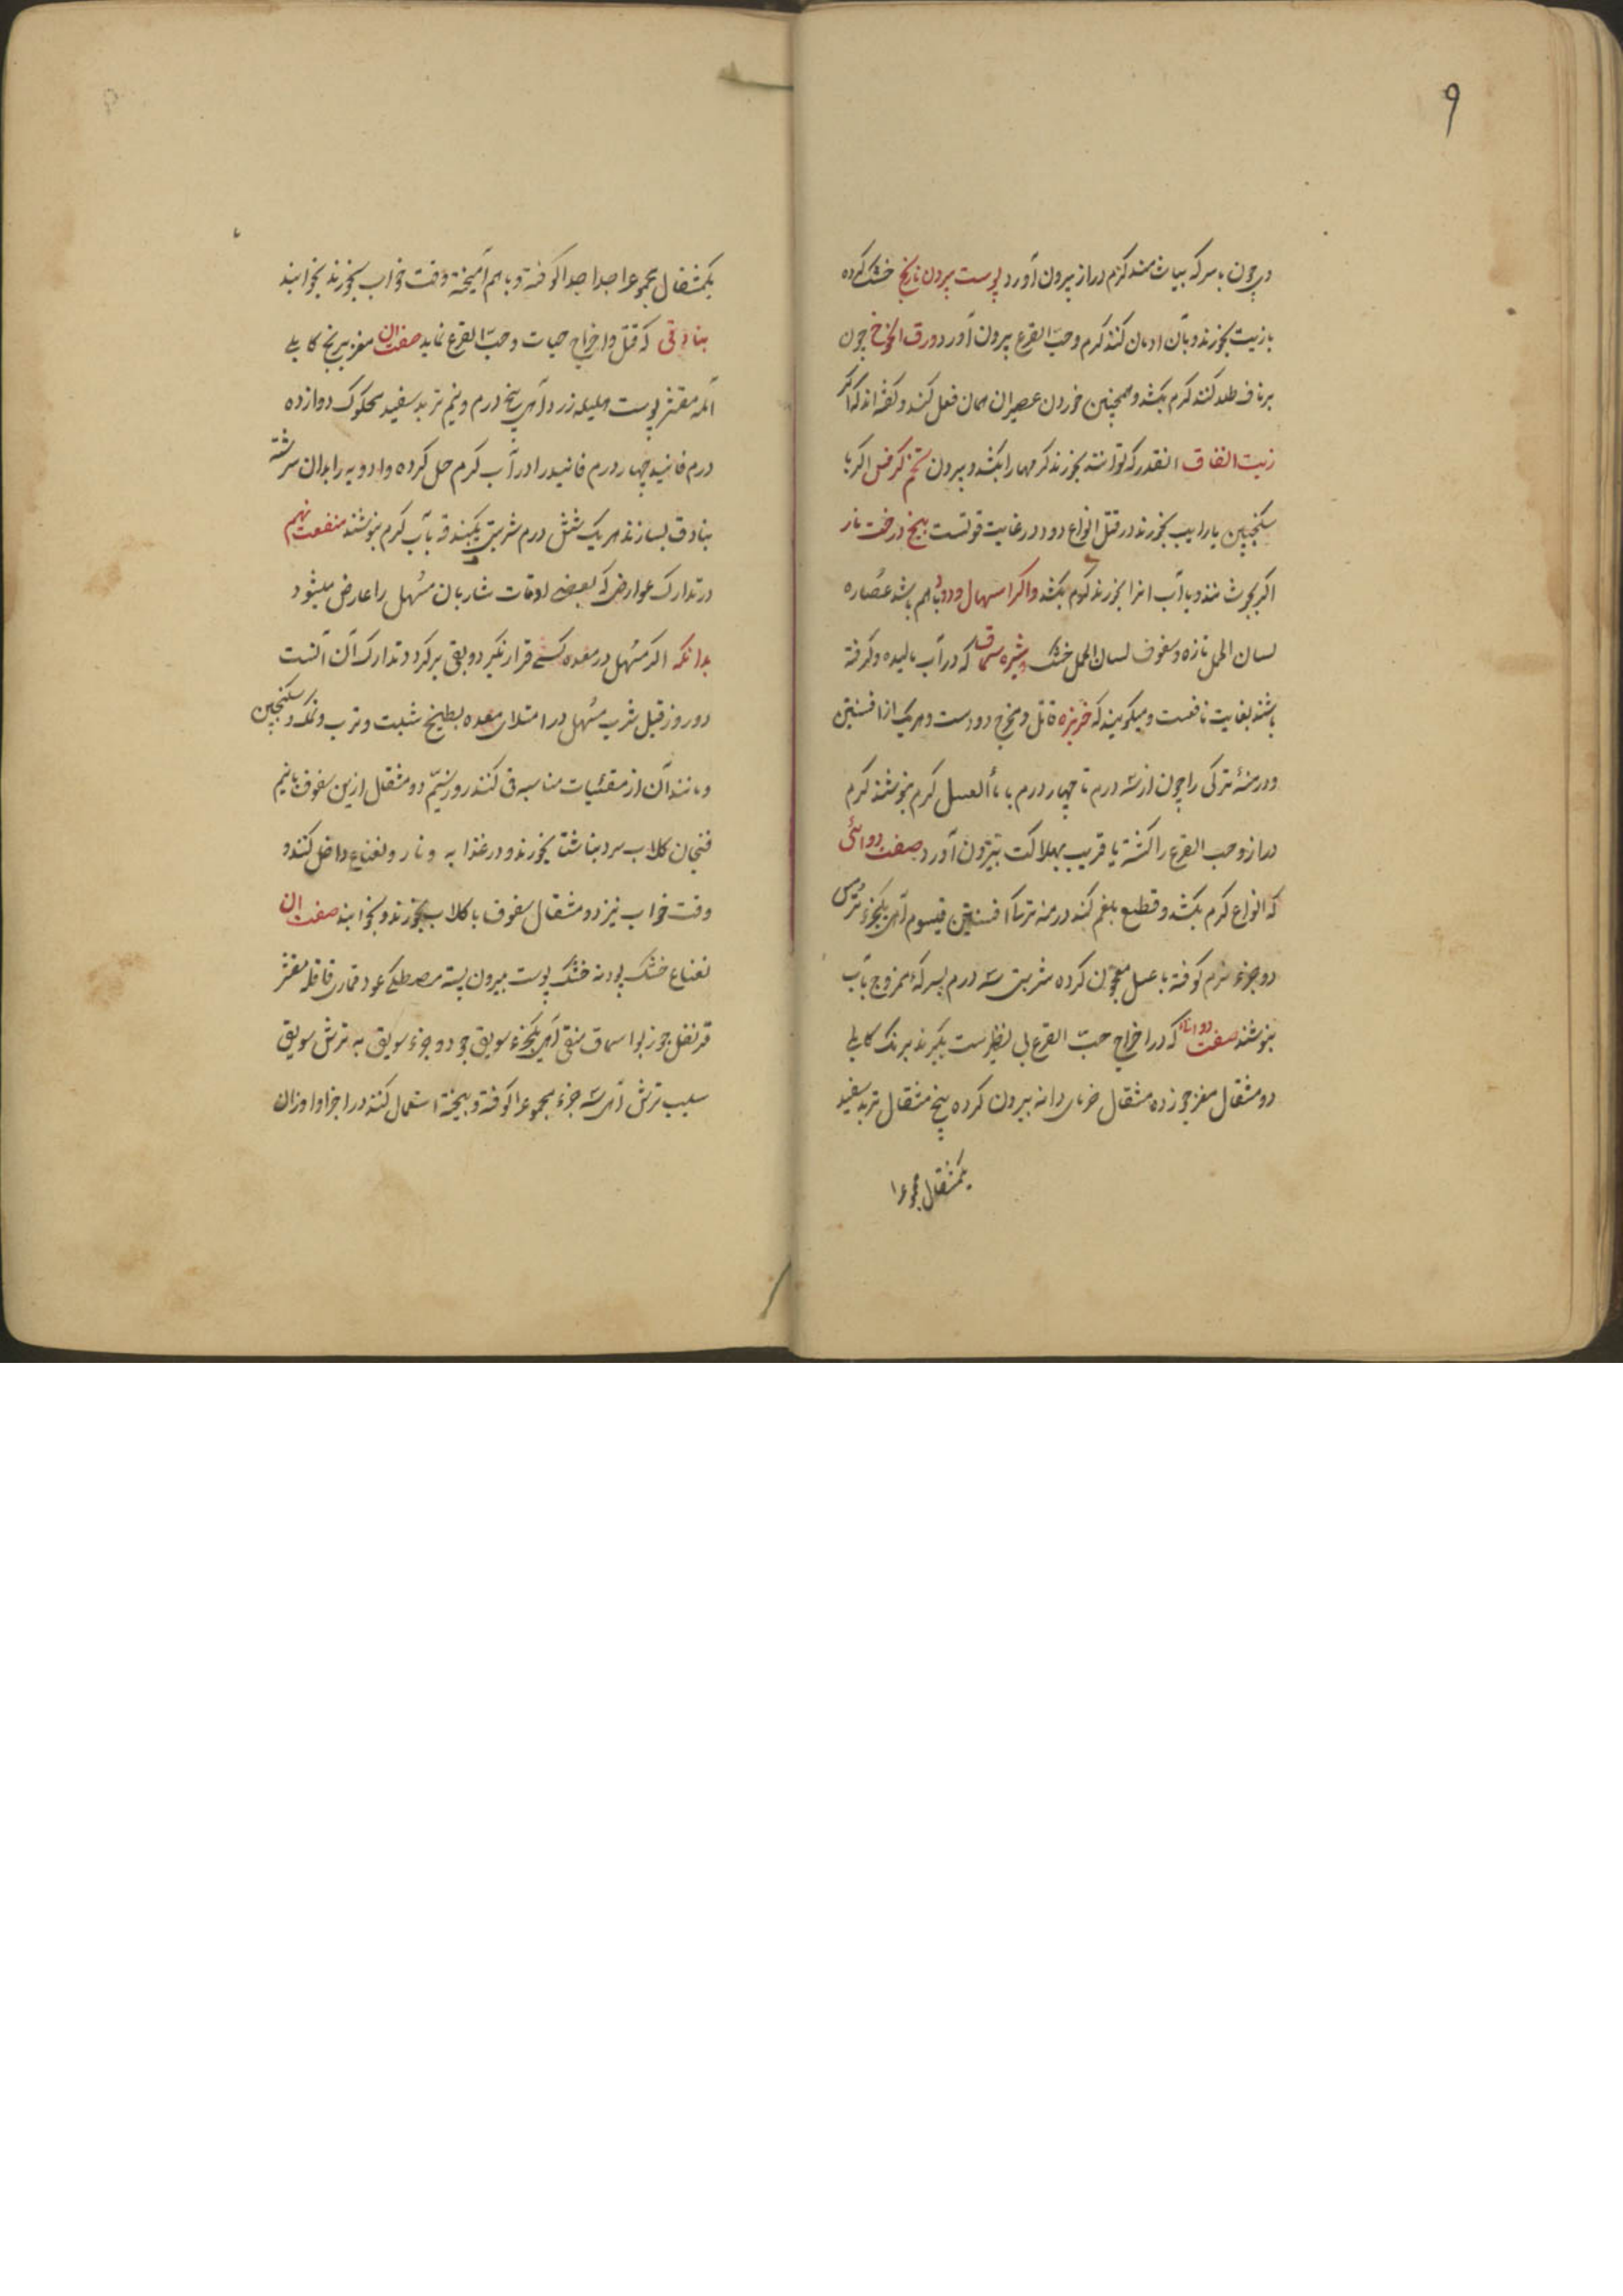 ۹
و چون با سرکه بیاشامند کرم دراز بیرون آورد پوست بیرون نارنج خشک کرده
با زیت بخورند و بآن ادمان کنند کرم و حب القرع بیرون آورد و ورق الخوخ چون
بر ناف طلا کنند کرم بکشد و همچنین خوردن عصیر ان همان فعل کند و گفته اند که اگر
زیت انفاق انقدر که توانند بخورند کرمها را بکشد و بیرون تخم کرفس اگر با
سکنجبین یا راسب بخورند در قتل انواع دود در غایت قوتست بیخ درخت نار
اگر بجوشانند و با آب انرا بخورند کرم بکشد و اگر اسهال و دود باهم باشد عصاره
لسان الحمل تازه و سفوف لسان الحمل خشک و شیره سماق که در آب مالیده و گرفته
باشند بغایت نافعست و میگویند که خربزه قاتل و مخرج دودست و هریک از افسنتین
و درمنهٔ ترکی را چون از سه درم تا چهار درم با مأالعسل گرم بنوشند کرم
دراز و حب القرع را کشته یا قریب بهلاکت بیرون آورد صفت دوائی
که انواع کرم بکشد و قطع بلغم کند درمنه ترکی افسنتین قیسوم از هر یکجزء ترمس
دو جزء نرم کوفته با عسل معجون کرده شربتی سه درم بسرکهٔ ممزوج بآب
بنوشند صفت دوائی که در اخراج حبّ القرع بی نظیرست بگیرند برنک کابلی
دو مثقال مغز جوز ده مثقال خرمای دانه بیرون کرده پنج مثقال تربد سفید
یکمثقال مجموعرا
یکمثقال مجموعرا جدا جدا کوفته و باهم آمیخته وقت خواب بخورند بخوابند
بنادقی که قتل و اخراج حیات و حبّ القرع نماید صفت ان مغز برنج کابلی
آمله مقشر پوست هلیله زرد از هر پنج درم و نیم تربد سفید محکوک دوازده
درم فانید چهار درم فانید را در آب گرم حل کرده و ادویه را بدان سرشته
بنادق بسازند هر یک شش درم شربتی یکبندقه بآب گرم بنوشند منفعت نهم
در تدارک عوارض که بعضی اوقات شاربان مسهل را عارض میشود
بدانکه اگر مسهل در معده کسی قرار نگیرد و بقی برگردد تدارک آن آنست
دو روز قبل شرب مسهل در امتلای معده بطبیخ شبت و ترب و نمک و سکنجبین
و مانند آن از مقیّئات مناسبه قی کنند روز سیّم دو مثقال ازین سفوف با نیم
فنجان گلاب سرد بناشتا بخورند و در غذا به و نار و نعناع داخل کنند و
وقت خواب نیز دو مثقال سفوف با گلاب بخورند و بخوابند صفت ان
نعناع خشک پودنه خشک پوست بیرون پسته مصطکی عود قماری قاقله مقشر
قرنفل جوز بوا سماق منقی از هر یکجزء سویق جو دو جزء سویق به ترش سویق
سیب ترش از هر سه جزء مجموعرا کوفته و بیخته استعمال کنند در اجزا و اوزان